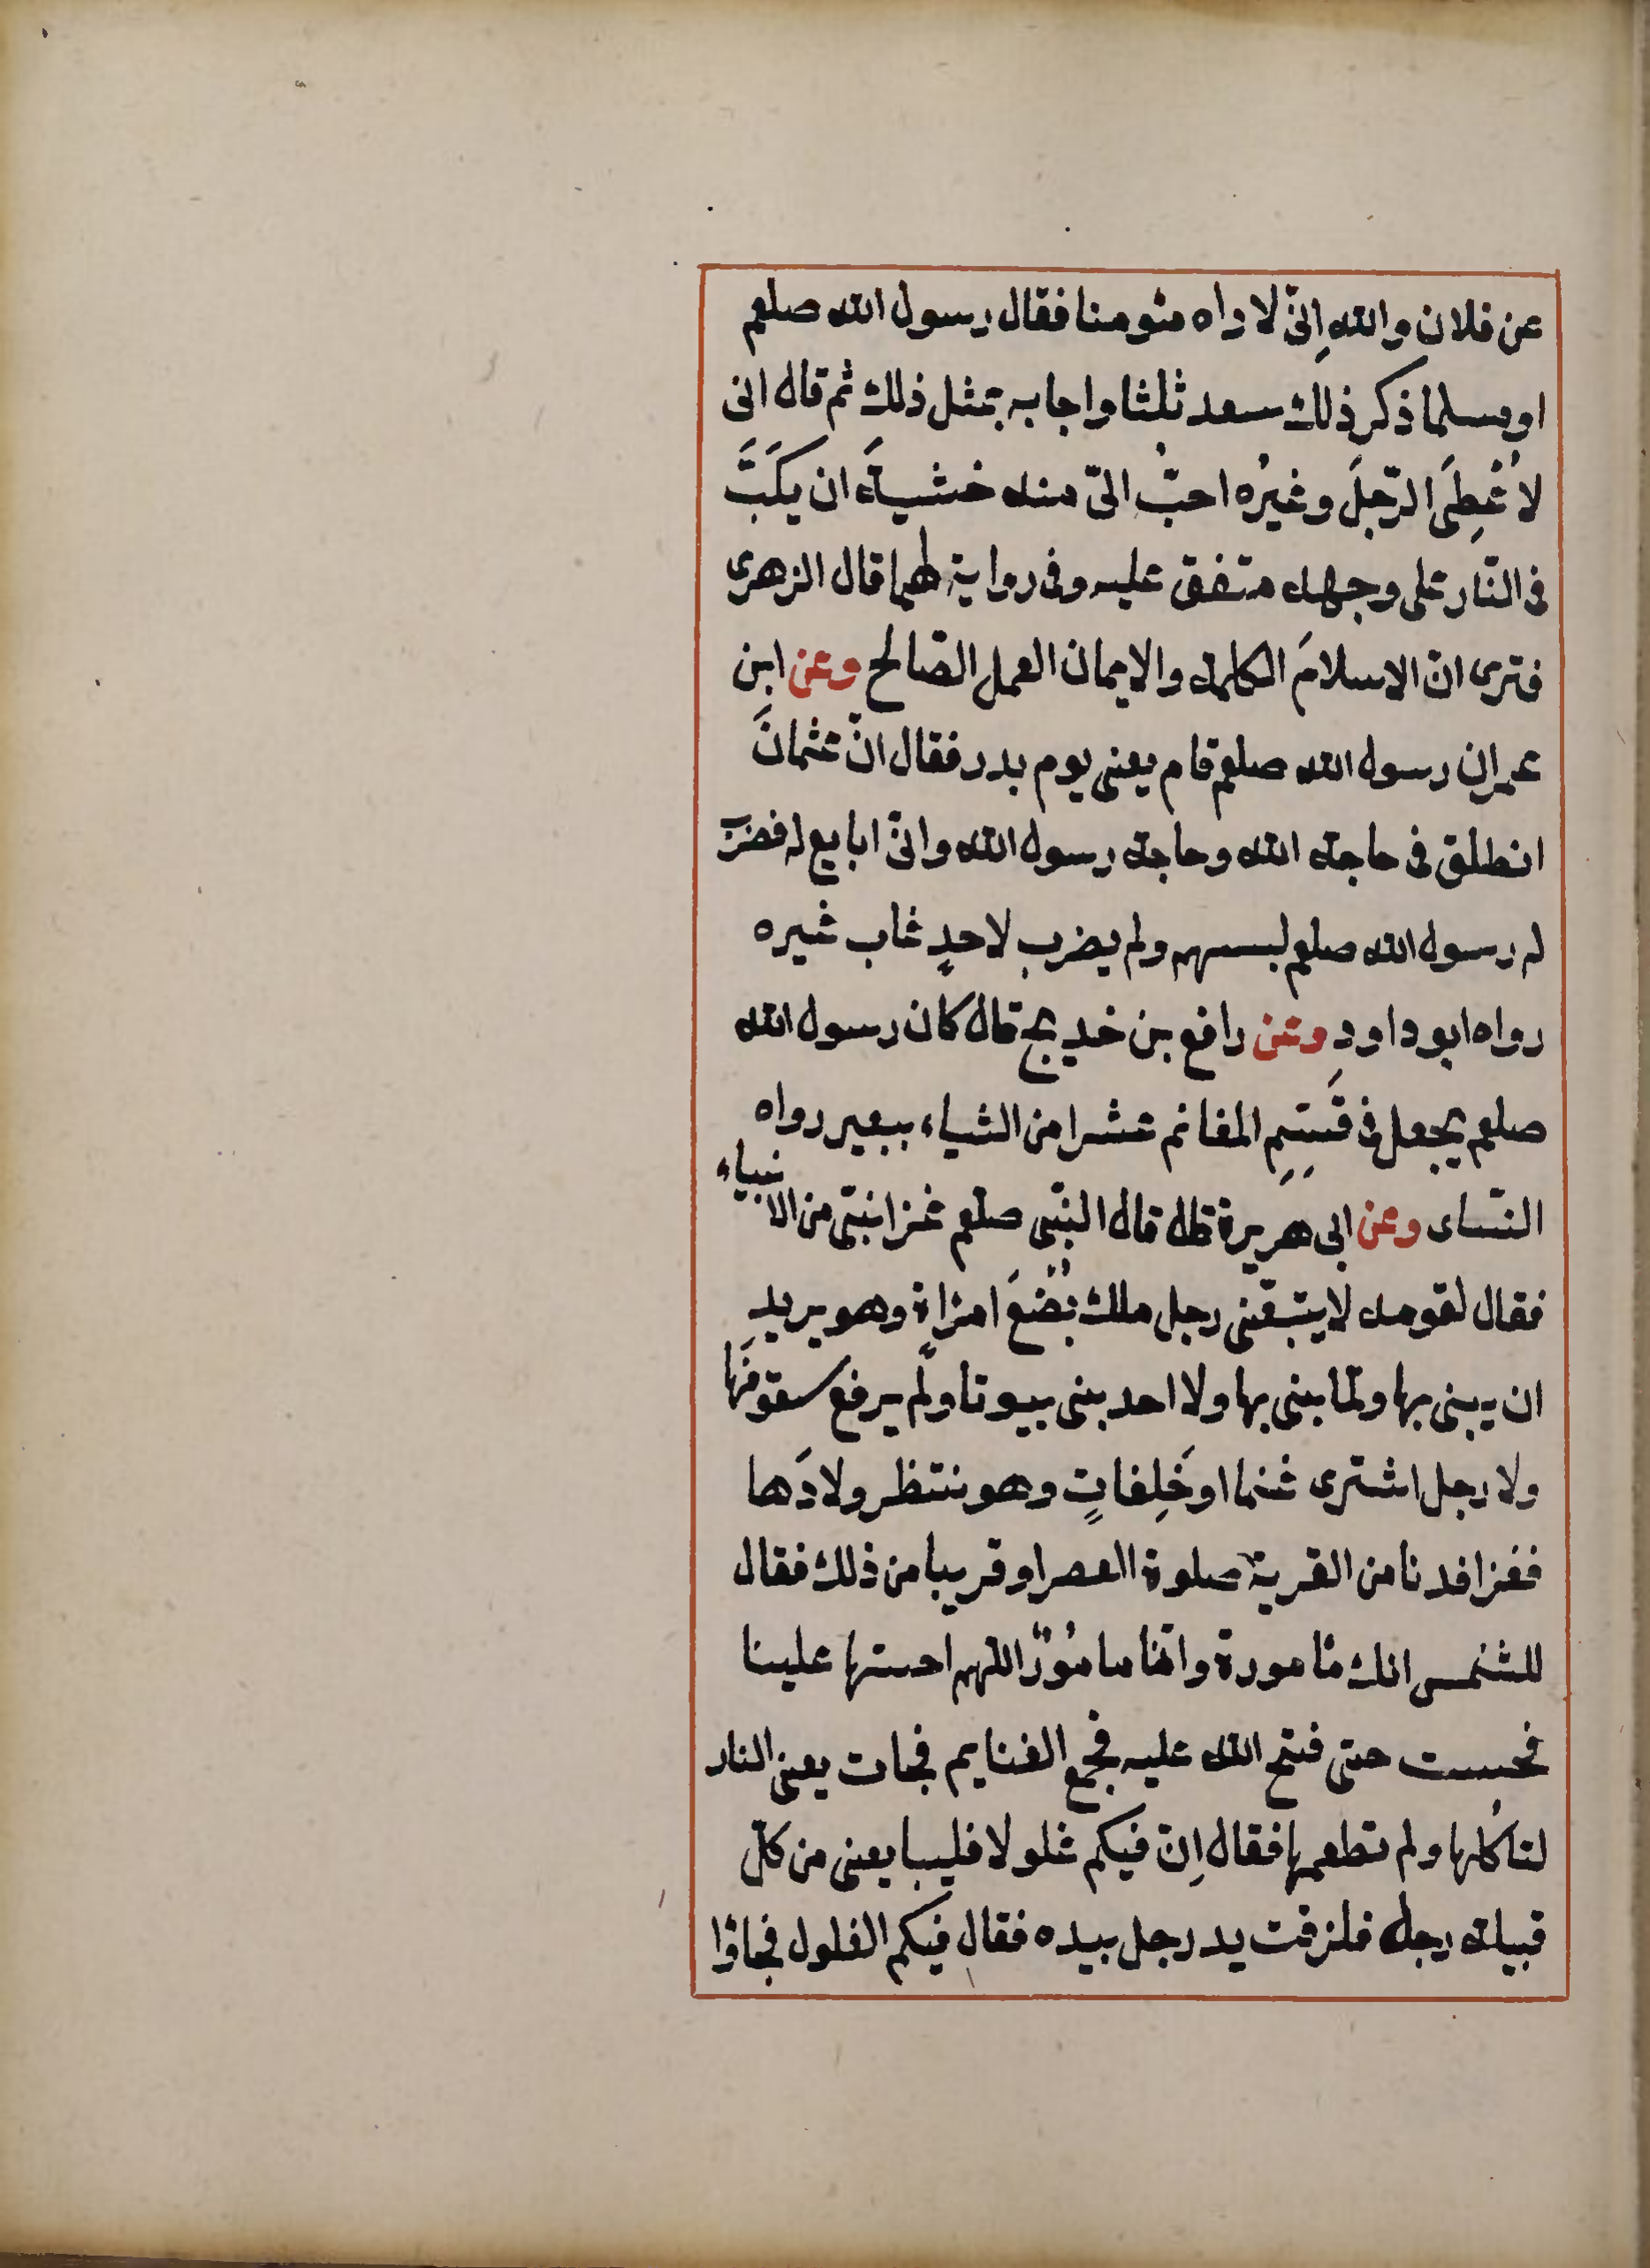 عن فلان والله اِنّى لاراه مئومنا فقال رسول الله صلعم
اومسلما ذكر ذلك سعد ثلثا واجابه بمثل ذلك ثم قال انى
لاُعْطِىَ الرّجلَ وغيرُه احبّ الىّ منه خشيةَ ان يكَبَّ
فى النّار على وجهه متفق عليه وفى رواية لهما قال الزهرى
فترى انّ الاسلامَ الكلمة والايمان العمل الصّالح وعن ابن
عمر ان رسول الله صلعم قام يعنى يوم بدر فقال انّ عثمانَ
انطلق فى حاجة الله وحاجة رسول الله وانّى ابايع له فضرَبَ
له رسول الله صلعم بسهم ولم يضرب لاحدٍ غاب غيره
رواه ابو داود وعن رافع بن خديج قال كان رسول الله
صلعم يجعل فى قَسْمِ المغانم عشرا من الشياء ببعير رواه
النّساى وعن ابى هريرة قال قال النّبى صلعم غزا نبىّ من الانبياء
فقال لقومه لا يتبعنى رجل ملك بُضْعَ امراةٍ وهو يريد
ان يبنى بها ولمّا يبنى بها ولا احد بنى بيوتا ولم يرفع سقوفَها
ولا رجل اشترى غنما او خَلِفاتٍ وهو ينتظر ولادَها
فغزا فدنا من القرية صلوة العصر او قريبا من ذلك فقال
للشمس انك مأمورة وانا مامُوْرٌ اللهم احبسها علينا
فحبست حتى فتح الله عليه فجمع الغنايم فجات يعنى النار
لتاكُلها ولم تطعمها فقال اِنّ فيكم غلولا فليبايعنى من كلّ
قبيلة رجل فلزقت يد رجل بيده فقال فيكم الغلول فجاؤا